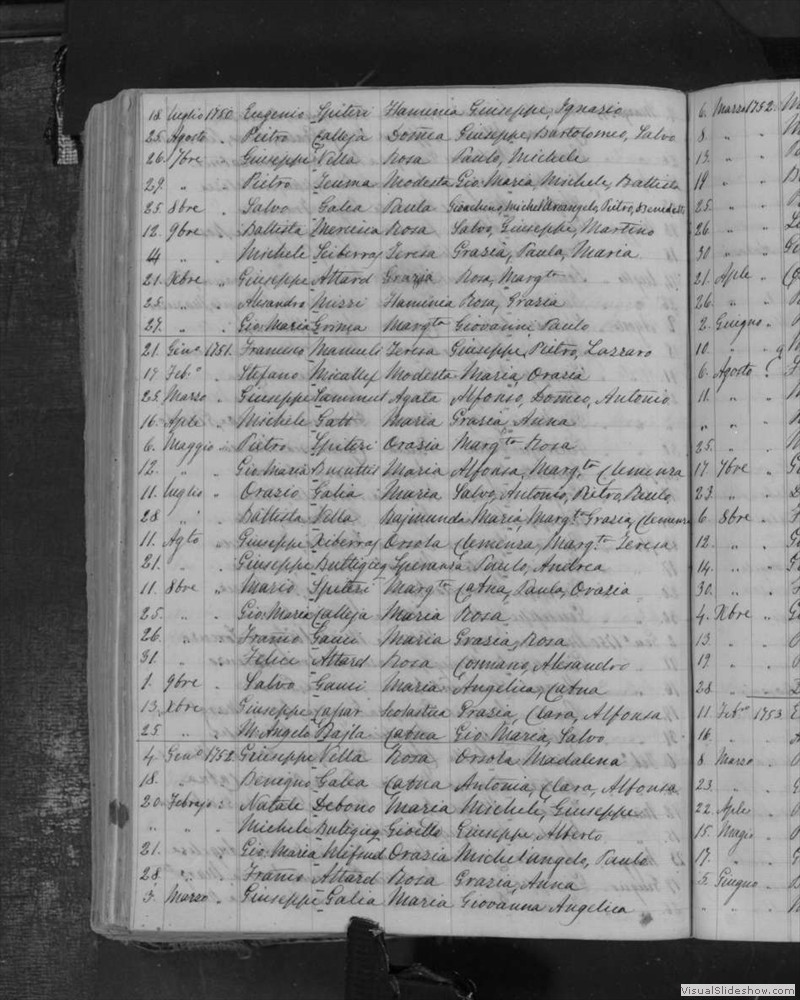 18. luglio 1750 Eugenio Spiteri Flaminia Giuseppe, Ignazio
25. Agosto " Pietro Calleja Domea Giuseppe, Bartolomeo, Salvo
26. 7bre " Giuseppe Vella Rosa Paulo, Michele
29. " " Pietro Modesta Gio Maria, Michele, Battista
25. 8bre " Salvo Galea Paula Gioachino, Michel'Arcangelo, Pietro, Benedetto
12. 9bre " Battista Mercieca Rosa Salvo, Giuseppe, Martino
14 " " Michele Sciberras Teresa Grazia, Paula, Maria
21. Xbre " Giuseppe Attard Grazia Rosa, Margta
25. " " Alesandro Mizzi Flaminia Rosa, Grazia
27. " " Gio. Maria Grima Margta Giovanni Paulo
21. Gino 1751. Francesco Manueli Teresa Giuseppe, Pietro, Lazzaro
17 Febo " Stefano Micallef Modesta Maria, Orazia
25. Marzo " Giuseppe Sammut Agata Alfonso, Domeo, Antonio
16. Aple " Michele Gatt Maria Grazia, Anna
6. Maggio " Pietro Spiteri Orazia Margta Rosa
12. " " Gio. Maria Maria Alfonsa, Margta Clemenza
11. luglio " Orazio Galea Maria Salvo, Antonio, Pietro, Paulo
28 " " Battista Vella Rajmunda Maria, Margta Grazia, Clemenza
11. Agto " Giuseppe Xiberras Orsola Clemenza, Margta Teresa
21. " " Giuseppe Buttigieg Speranza Paulo, Andrea
11. 8bre " Mario Spiteri Margta Catna, Paula, Orazia
25. " " Gio. Maria Calleja Maria Rosa
26. " " Franco Gauci Maria Grazia, Rosa
31. " " Felice Attard Rosa Alesandro
1. 9bre " Salvo Gauci Maria Angelica, Catna
13. Xbre " Giuseppe Capar Scolastica Grazia, Clara, Alfonsa
25 " " M. Angelo Bajla Catna Gio Maria, Salvo
4. Geno 1752. Giuseppe Vella Rosa Orsola Madalena
18. " " Benegno Galea Catna Antonia, Clara, Alfonsa
20. Febrajo " Natale Debono Maria Michele, Giuseppe
" " " Michele Butigieg Gioella Giuseppe, Alberto
21. " " Gio. Maria Mifsud Orazia Michel'angelo, Paulo
28. " " Franco Attard Rosa Grazia, Anna
3. Marzo " Giuseppe Galea Maria Giovanna Angelica
6. Marzo 1752.
8 " "
13. " "
19 " "
25. " "
26. " "
30 " "
21. Aple "
26. " "
2. Giugno "
10. " "
6. Agosto
11. " "
" " "
25. " "
17. 7bre "
23. " "
6. 8bre "
12. " "
14. " "
30. " "
4. Xbre "
13. " "
19. " "
28 " "
11. Febo 1753.
16. " "
8. Marzo "
23. " "
22. Aple "
15. Magio "
17. " "
5. Giugno "
" " "
VisualSlideshow.com